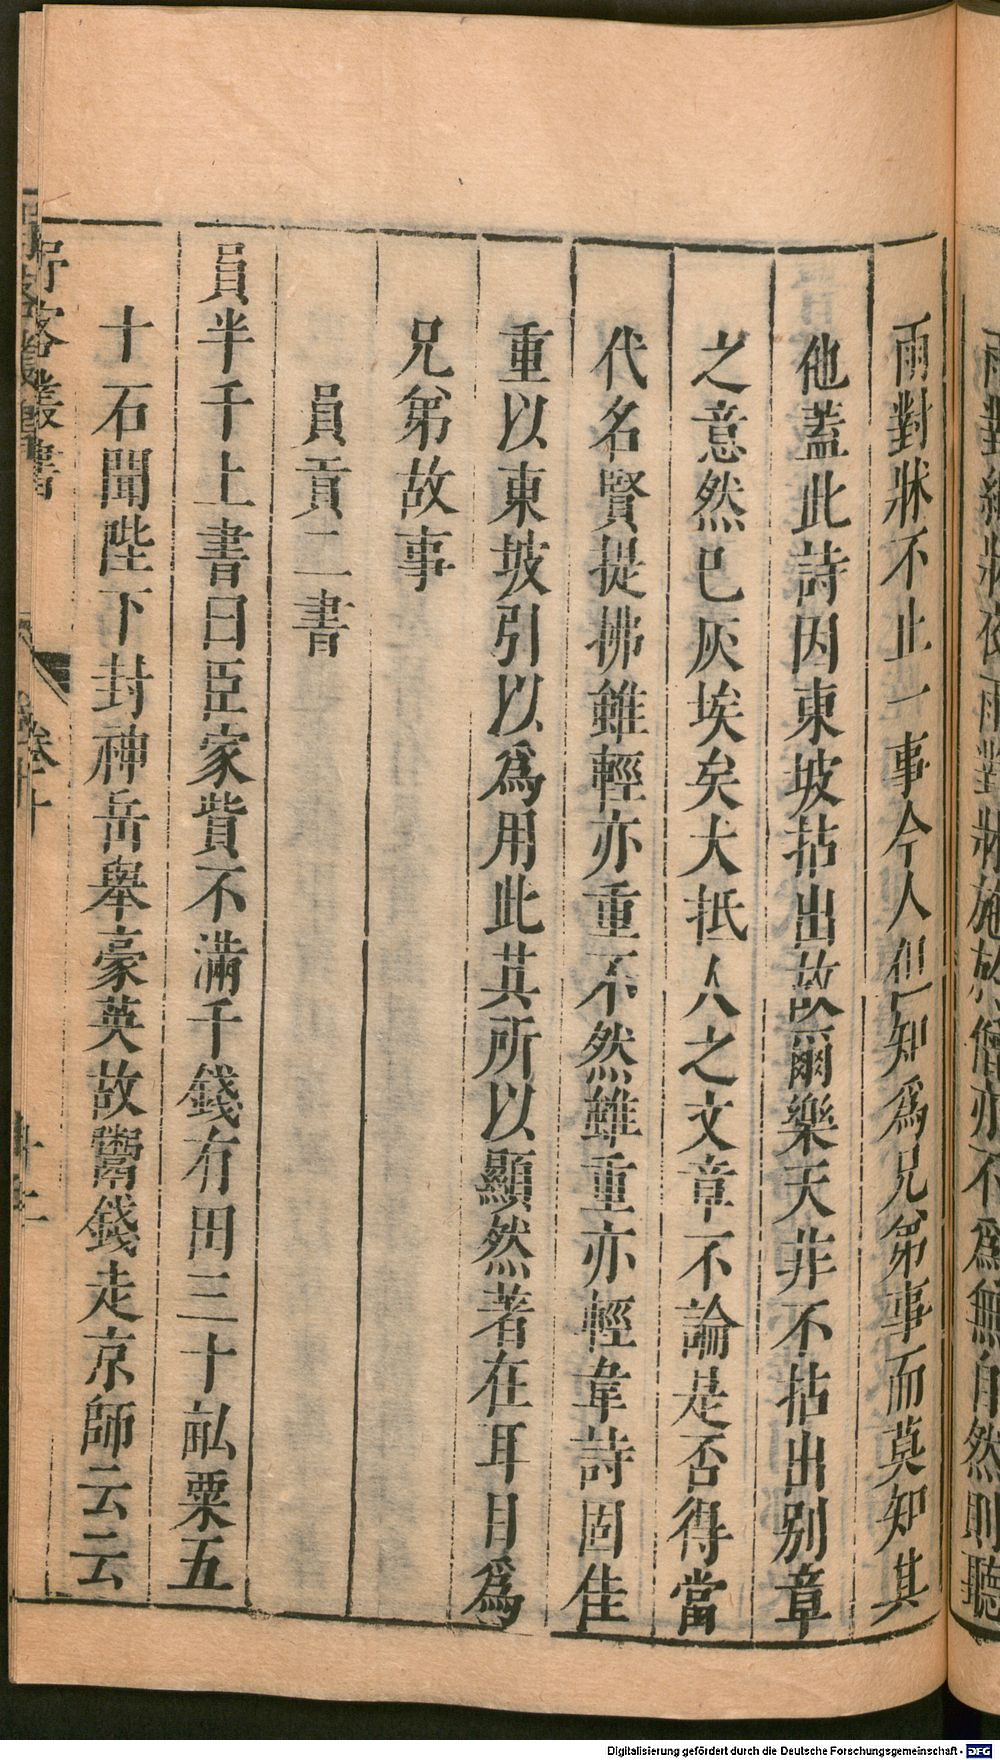 雨對牀不止一事今人但知爲兄弟事而莫知其
他蓋此詩因東坡拈出故爾樂天非不拈出別章
之意然已灰埃矣大抵人之文章不論是否得當
代名賢提拂雖輕亦重不然雖重亦輕韋詩固佳
重以東坡引以爲用此其所以顯然著在耳目爲
兄弟故事
員貢二書
員半千上書曰臣家貲不滿千錢有田三十畝粟五
十石聞陛下封神岳舉豪英故鬻錢走京師云云
卷十
Digitalisierung gefördert durch die Deutsche Forschungsgemeinschaft - DFG